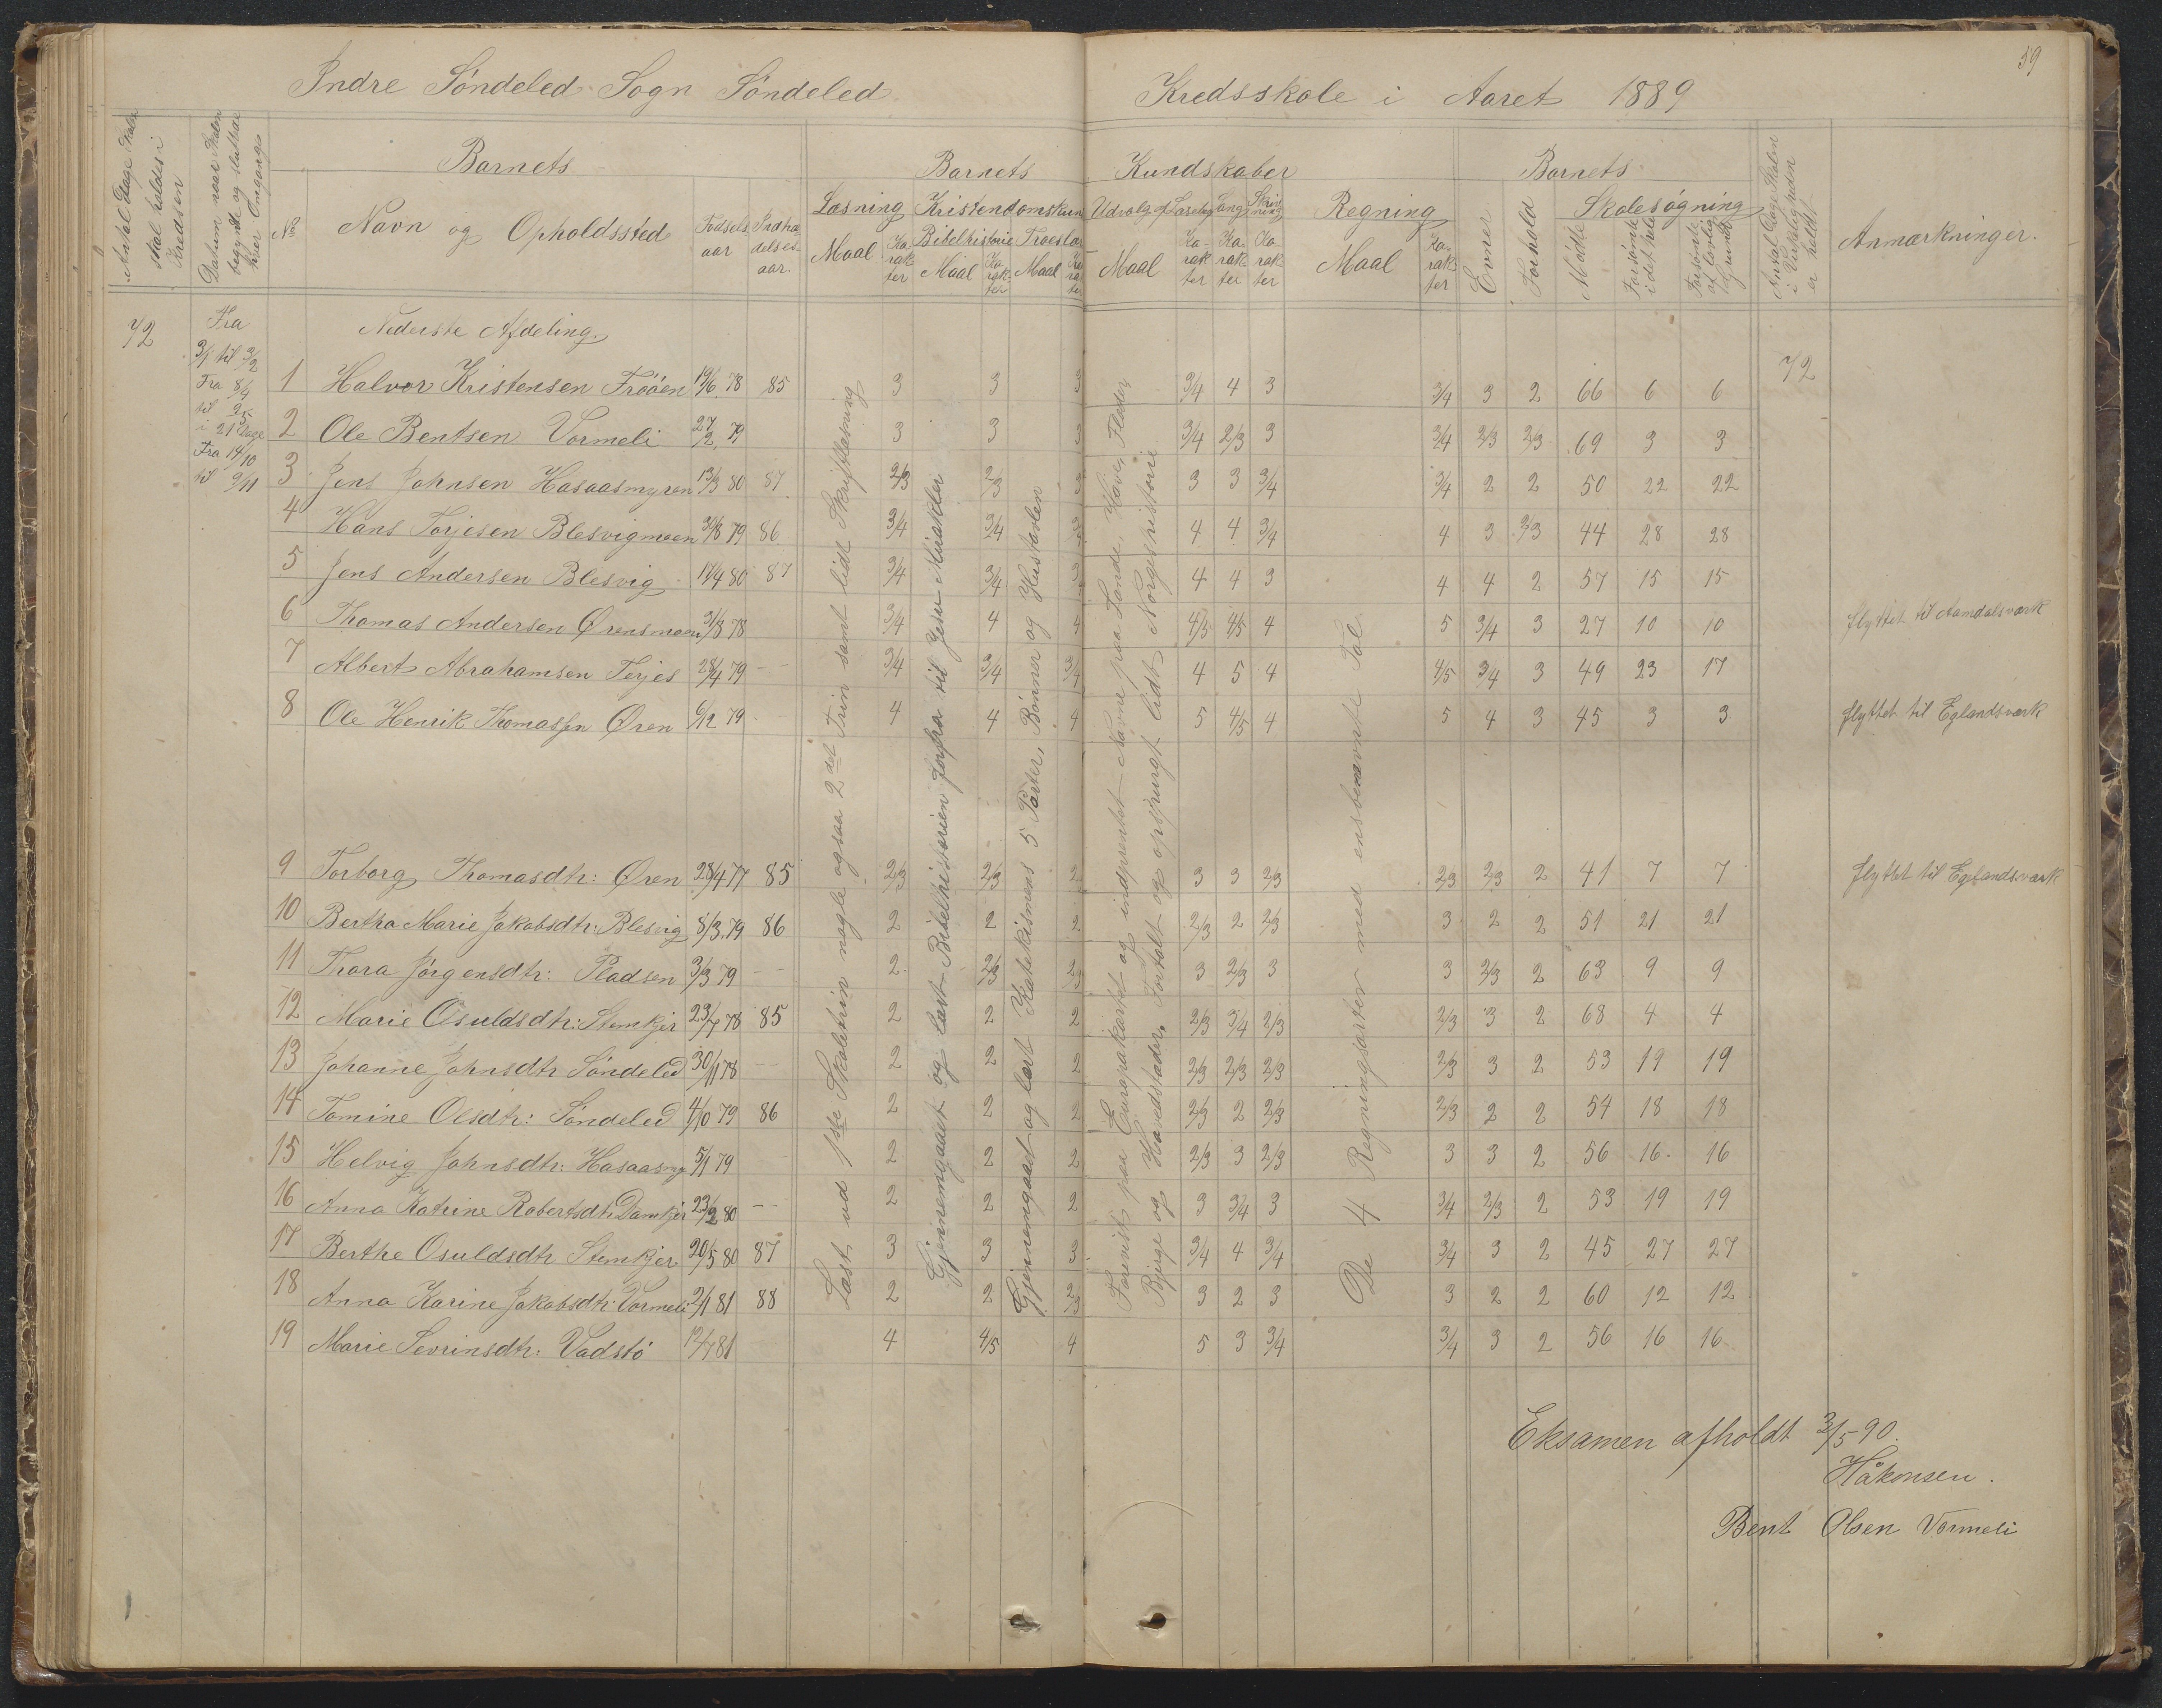 59
Indre Söndeled Sogn Söndeled Kredsskole i Aaret 1889
Antal Dage Skolen skal holdes i Kredsen
Datum naar Skolen begyndte og sluttede hver Omgang
No
Barnets
Navn og Opholdssted
Fødselsaar
Indtrædelsesaar.
Barnets Kundskaber
Læsning
Maal
Karakter
Kristendomskund
Bibelhistorie
Maal
Karakter
Troeslære
Maal
Karakter
Udvalg af Læsebog
Maal
Karakter
Sang
Karakter
Skrivning
Karakter
Regning
Maal
Karakter
Barnets
Evner
Forhold
Skolesøgning
Mødte
Forsømte i det hele
Forsømte af lovlig Grund
Antal Dage Skolen i Virkeligheden er holdt
Anmærkninger.
72
Fra
3/1 til 9/2
Fra 8/4
til 2/5
i 21 Dage
Fra 14/10
til 9/11
Nederste Afdeling.
72
1 Halvor Kristensen Frøöen 19/6 78 85 3 3 3 3/4 4 3 3/4 3 2 66 6 6
2 Ole Bentsen Vormeli 27/2 79 3 3 3 3/4 2/3 3 3/4 2/3 2/3 69 3 3
3 Jens Johnsen Hasaasmyren 13/3 80 87 2/3 2/3 3 3 3 3/4 3/4 2 2 50 22 22
4 Hans Torjesen Blesvigmoen 31/8 79 86 3/4 3/4 3/4 4 4 3/4 4 3 2/3 44 28 28
5 Jens Andersen Blesvig 17/4 80 87 3/4 3/4 3/4 4 4 3 4 4 2 57 15 15
6 Thomas Andersen Ørensmoen 31/8 78 3/4 4 4 4/5 4/5 4 5 3/4 3 27 10 10 flyttet til Aamdalsværk
7 Albert Abrahamsen Terjes 28/4 79 -- 3/4 3/4 3/4 4 5 4 4/5 3/4 3 49 23 17
8 Ole Henrik Thomassen Øren 6/12 79 4 4 4 5 4/5 4 5 4 3 45 3 3 flyttet til Eglandsværk
9 Torborg Thomasdtr: Øren 28/4 77 85 2/3 2/3 2 3 3 2/3 2/3 2/3 2 41 7 7 flyttet til Egelandsværk
10 Bertha Marie Jakobsdtr: Blesvig 8/3 79 86 2 2 2 2/3 2 2/3 3 2 2 51 21 21
11 Thora Jörgensdtr: Pladsen 3/3 79 -- 2 2/3 2/3 3 2/3 3 3 2/3 2 63 9 9
12 Marie Osuldsdtr: Stemkjer 23/7 78 85 2 2 2 2/3 3/4 2/3 2/3 3 2 68 4 4
13 Johanne Johnsdtr Söndeled 30/11 78 -- 2 2 2 2/3 2/3 2/3 2/3 3 2 53 19 19
14 Tomine Olsdtr: Söndeled 4/10 79 86 2 2 2 2/3 2 2/3 2/3 2 2 54 18 18
15 Helvig Johnsdtr: Hasaasmy 5/1 79 2 2 2 2/3 3 2/3 3 3 2 56 16 16
16 Anna Katrine Robertsdtr Damkjer 23/2 80 -- 2 2 2 3 3/4 3 3/4 2/3 2 53 19 19
17 Berthe Osuldsdtr Stemkjer 20/5 80 87 3 3 3 3/4 4 3/4 3/4 3 2 45 27 27
18 Anna Karine Jakobsdtr: Vormeli 2/1 81 88 2 2 2/3 3 2 3 3 2 2 60 12 12
19 Marie Sevrinsdtr: Vadstö 12/7 81 4 4/5 4 5 3 3/4 3/4 3 2 56 16 16
Læst ud 1ste Skoletrin nogle ogsaa 2det Trin samt lidt Skriftlæsning
Gjennemgaaet og lært Bibelhistorien forfra til Jesu Mirakler
Gjennemgaaet og lært Katekismens 5 Parter, Bönner og Hustavlen
Forevist paa Europakartet og indprentet Navne paa Lande, Have, Floder
Bjerge og Hovedstæder. Fortalt og opspurgt lidt Norgeshistorie
De 4 Regningsarter med ensbenævnte Tal.
Eksamen afholdt 3/5 90.
Håkonsen.
Bent Olsen Vormeli